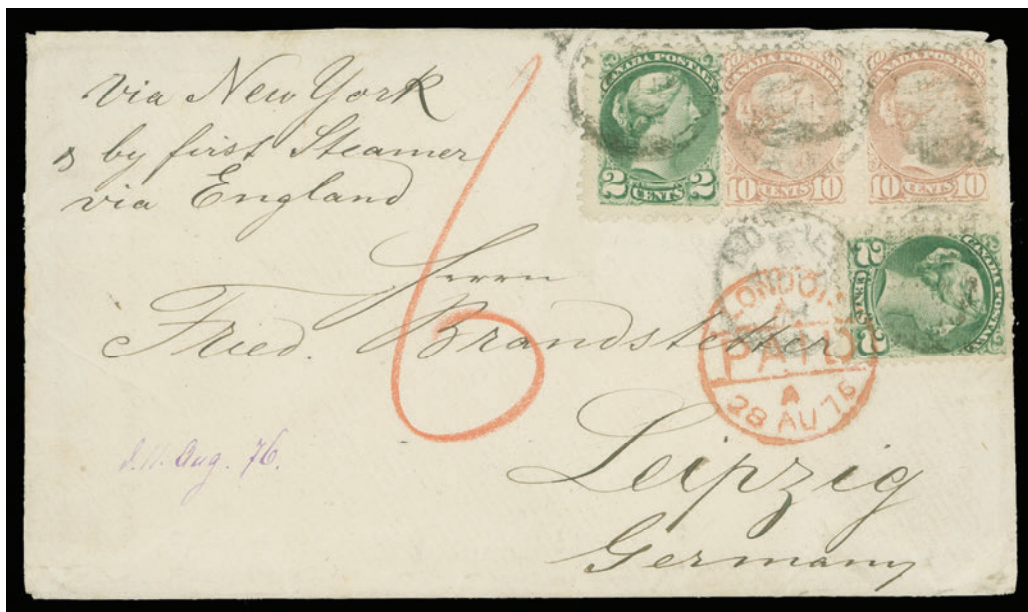 via New York
& by first Steamer
via England
6
CANADA POSTAGE
2 CENTS 2
CANADA POSTAGE
10 CENTS 10
CANADA POSTAGE
10 CENTS 10
CANADA POSTAGE
2 CENTS 2
LONDON
PAID
A
28 AU 76
Herrn
Fried. Brandstetter
Leipzig
Germany
Aug. 76.